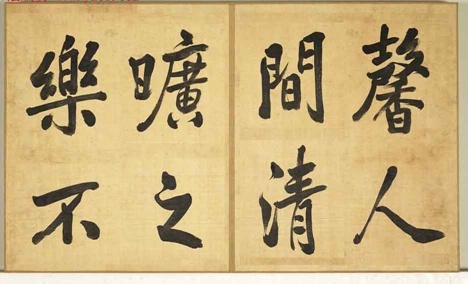 馨人
間清
曠之
樂不